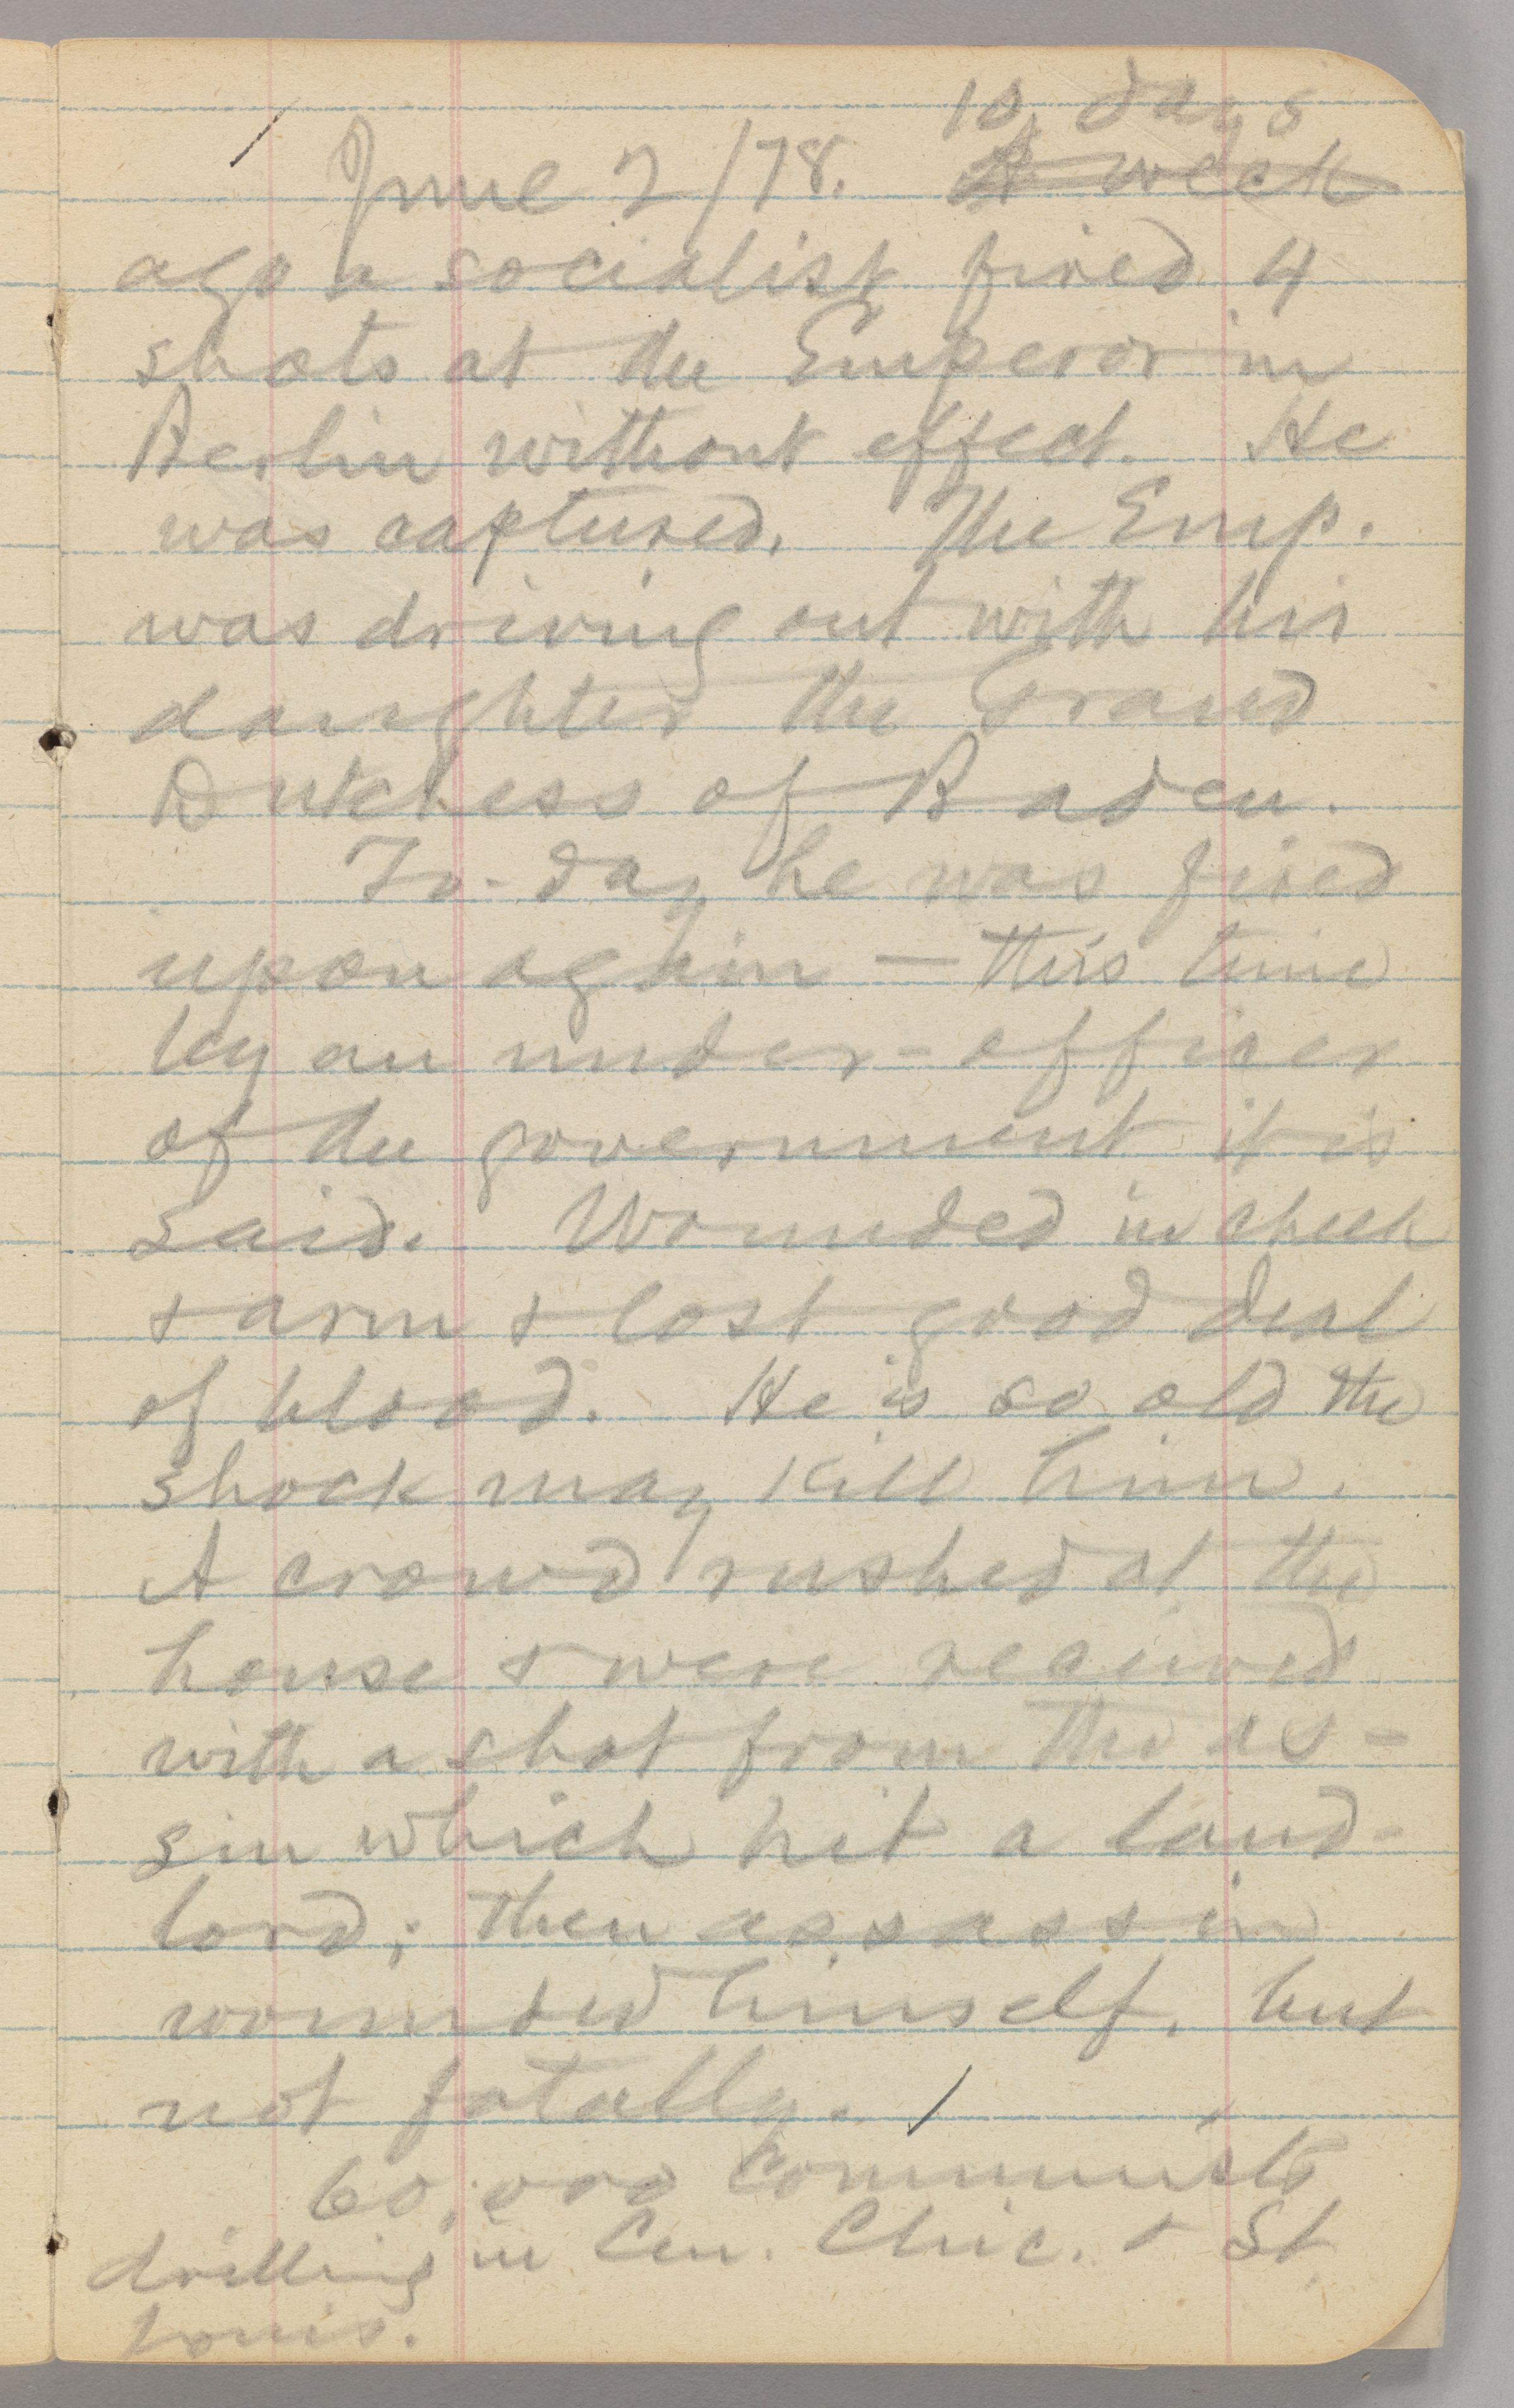 10 days
June 2/78. A week
ago a socialist fired 4
shots at the Emperor in
Berlin without effect. He
was captured. The Emp.
was driving out with his
daughter the Grand
Dutchess of Baden.
To-day he was fired
upon again — this time
by an under-officer
of the government it is
said. Wounded in cheek
& arm & lost good deal
of blood. He is so old the
shock may kill him.
A crowd rushed at the
house & were received
with a shot from the as-
sin which hit a land-
lord; then assassin
wounded himself, but
not fatally.
60,000 communists
drilling in Cin. Chic. & St
Louis.